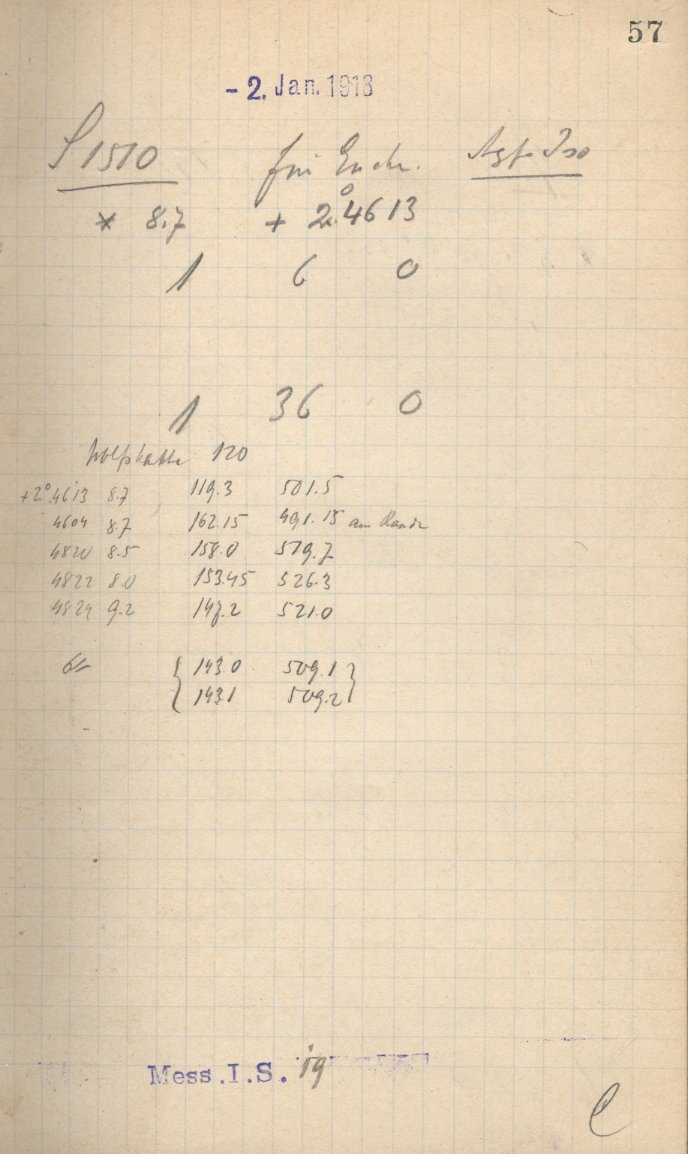 57
- 2. Jan. 1918
S 1510 für Agf. Iso
* 8.7 + 2°.4613
1 6 0
1 36 0
120
+2°.4613 8.7 119.3 501.5
4604 8.7 162.15 491.15 am Rande
4820 8.5 158.0 519.7
4822 8.0 153.45 526.3
4824 9.2 147.2 521.0
{ 143.0 509.1 }
{ 143.1 509.2 }
Mess. I. S. 19